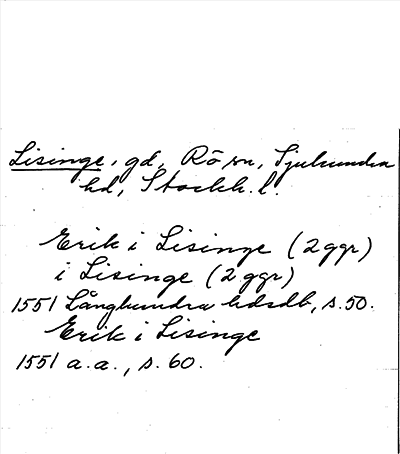 Lisinge, gd, Rö sn, Sjuhundra
hd, Stockh. l.
Erik i Lisinge (2 ggr)
i Lisinge (2 ggr)
1551 Långhundra hdsdb, s. 50.
Erik i Lisinge
1551 a. a., s. 60.